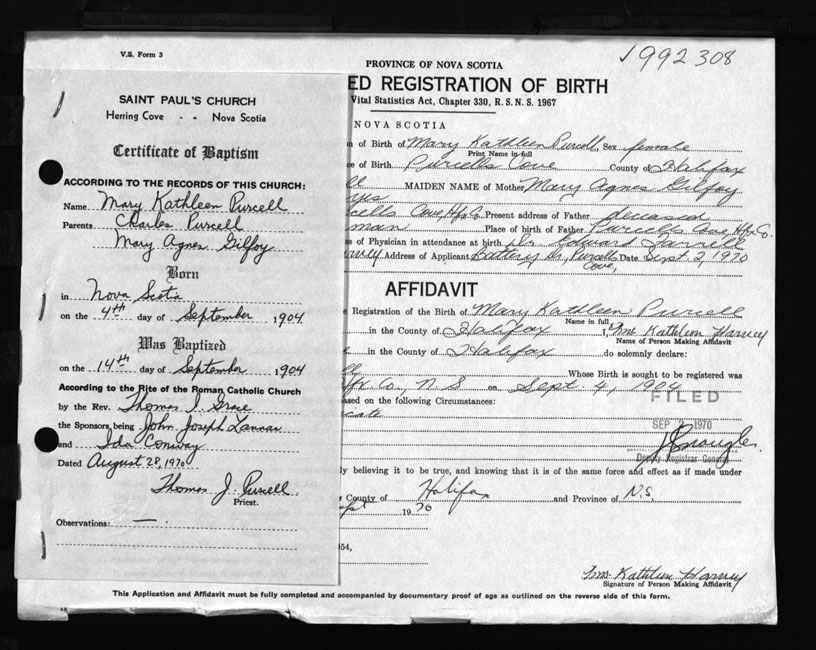 V.S. Form 3
1992 308
SAINT PAUL'S CHURCH
Herring Cove - - Nova Scotia
Certificate of Baptism
ACCORDING TO THE RECORDS OF THIS CHURCH:
Name Mary Kathleen Purcell
Parents Charles Purcell
Mary Agnes Gilfoy
Born
in Nova Scotia
on the 4th day of September 1904
Was Baptized
on the 14th day of September 1904
According to the Rite of the Roman Catholic Church
by the Rev. Thomas J. Grace
the Sponsors being John Joseph
and Ida Conway
Dated August 28, 1970
Thomas J. Purcell
Priest.
Observations: —
PROVINCE OF NOVA SCOTIA
ED REGISTRATION OF BIRTH
Vital Statistics Act, Chapter 330, R.S.N.S. 1967
NOVA SCOTIA
of Birth of Mary Kathleen Purcell, Sex female
Print Name in full
of Birth Purcells Cove County of Halifax
MAIDEN NAME of Mother Mary Agnes Gilfoy
Cove, Hfx Co. Present address of Father deceased
man Place of birth of Father Purcells Cove, Hfx Co.
of Physician in attendance at birth Dr. Edward Farrell
Address of Applicant Battery Dr., Purcells Cove, Date Sept. 2, 1970
AFFIDAVIT
Registration of the Birth of Mary Kathleen Purcell
Name in full
in the County of Halifax I, Mrs Kathleen Harvey
Name of Person Making Affidavit
in the County of Halifax do solemnly declare:
Whose Birth is sought to be registered was
Hfx Co., N.S on Sept 4, 1904
FILED
ased on the following Circumstances:
icate
SEP 1970
Deputy Registrar General
ly believing it to be true, and knowing that it is of the same force and effect as if made under
County of Halifax and Province of N.S.
Sept 1970
954,
Mrs Kathleen Harvey
Signature of Person Making Affidavit
This Application and Affidavit must be fully completed and accompanied by documentary proof of age as outlined on the reverse side of this form.